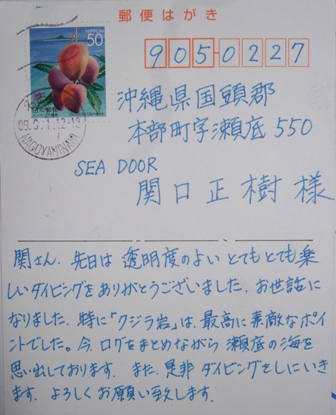 郵便はがき
50
905-0227
沖縄県国頭郡
本部町字瀬底550
SEA DOOR
関口正樹様
関さん、先日は透明度のよいとてもとても楽
しいダイビングをありがとうございました。お世話に
なりました。特に「クジラ岩」は、最高に素敵なポイ
ントでした。今、ログをまとめながら瀬底の海を
思い出しております。また、是非ダイビングをしにいき
ます。よろしくお願い致します。